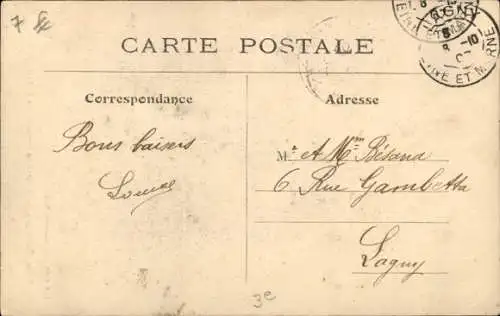 7
LAGNY
8 -10
SEINE ET MARNE
CARTE POSTALE
Correspondance
Adresse
Bons baisers
M. et Mme Bésana
6 Rue Gambetta
Lagny
3e